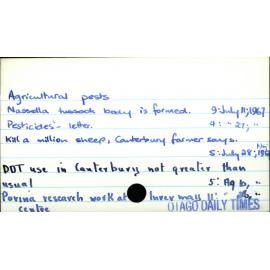 Agricultural pests
Nassella tussock body is formed. 9: July 11, 1967
Pesticides - letter. 4: " 27, "
Kill a million sheep, Canterbury farmer says.
5: July 28, 196
DDT use in Canterbury not greater than
usual 5: Ag 10, "
Porina research work at Invermay 11: "
centre
OTAGO DAILY TIMES